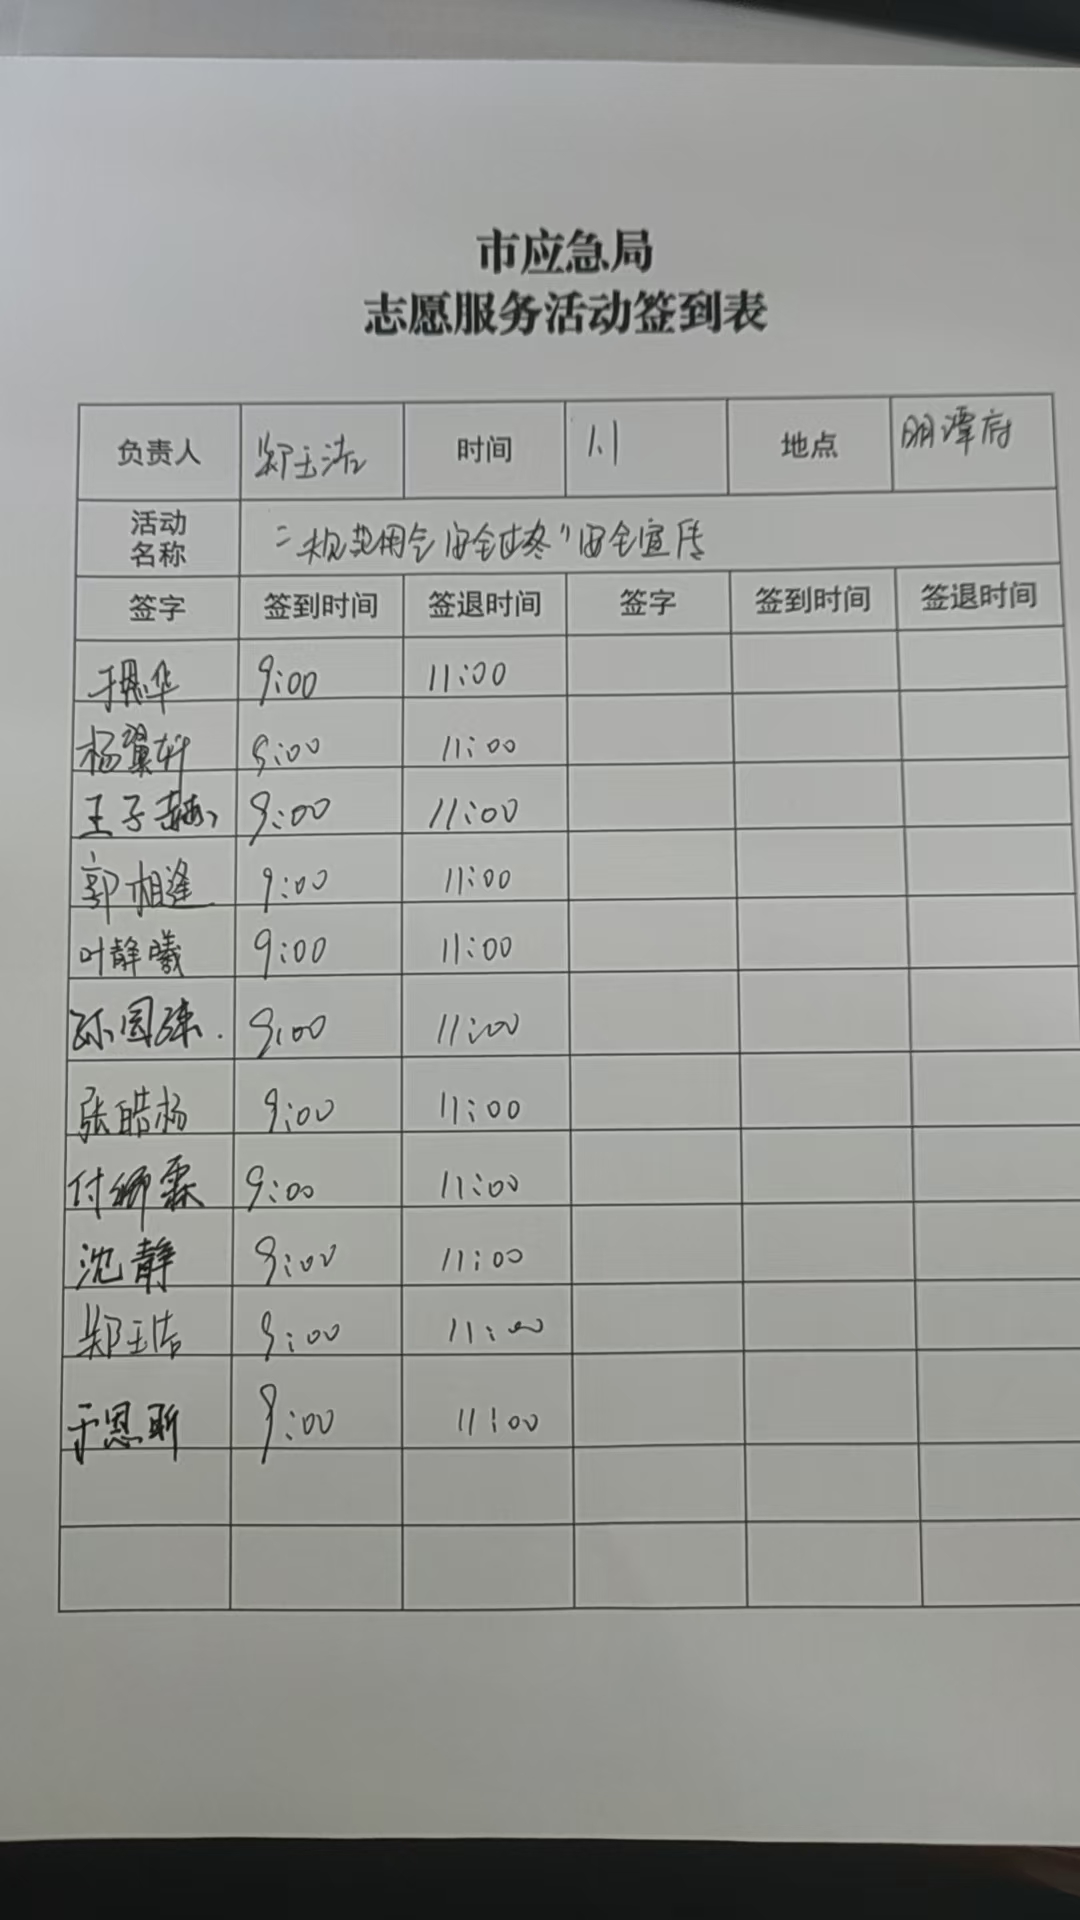 市应急局
志愿服务活动签到表
负责人 郑玉洁 时间 1.1 地点 明潭府
活动名称 "规范用气 安全过冬"安全宣传
签字 签到时间 签退时间 签字 签到时间 签退时间
华 9:00 11:00
杨翼轩 9:00 11:00
王子赫 9:00 11:00
郭相逢 9:00 11:00
叶静曦 9:00 11:00
孙国 9:00 11:00
张皓杨 9:00 11:00
付 霖 9:00 11:00
沈静 9:00 11:00
郑玉洁 9:00 11:00
于恩昕 9:00 11:00